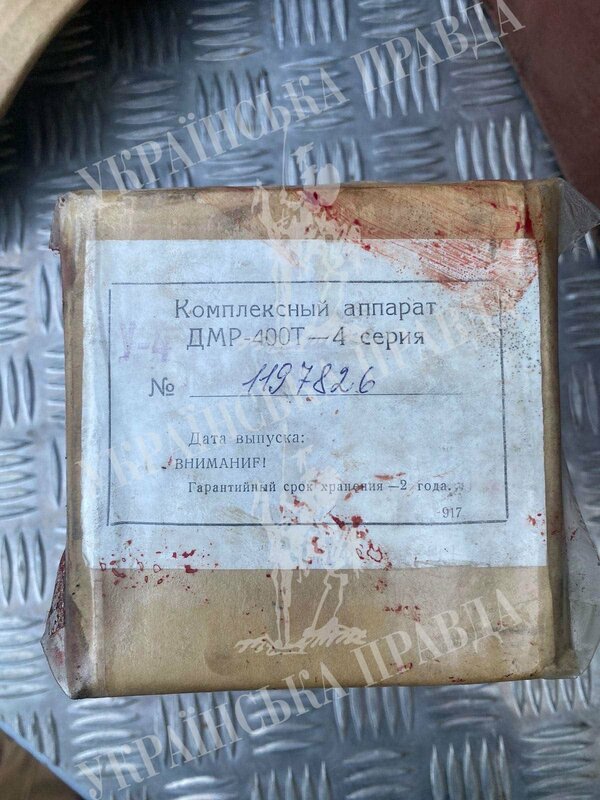 УКРАЇНСЬКА ПРАВДА
Комплексный аппарат
ДМР-400Т—4 серия
У-4
№ 1197826
УКРАЇНСЬКА ПРАВДА
Дата выпуска:
ВНИМАНИЕ!
Гарантийный срок хранения—2 года.
-917
УКРАЇНСЬКА ПРАВДА